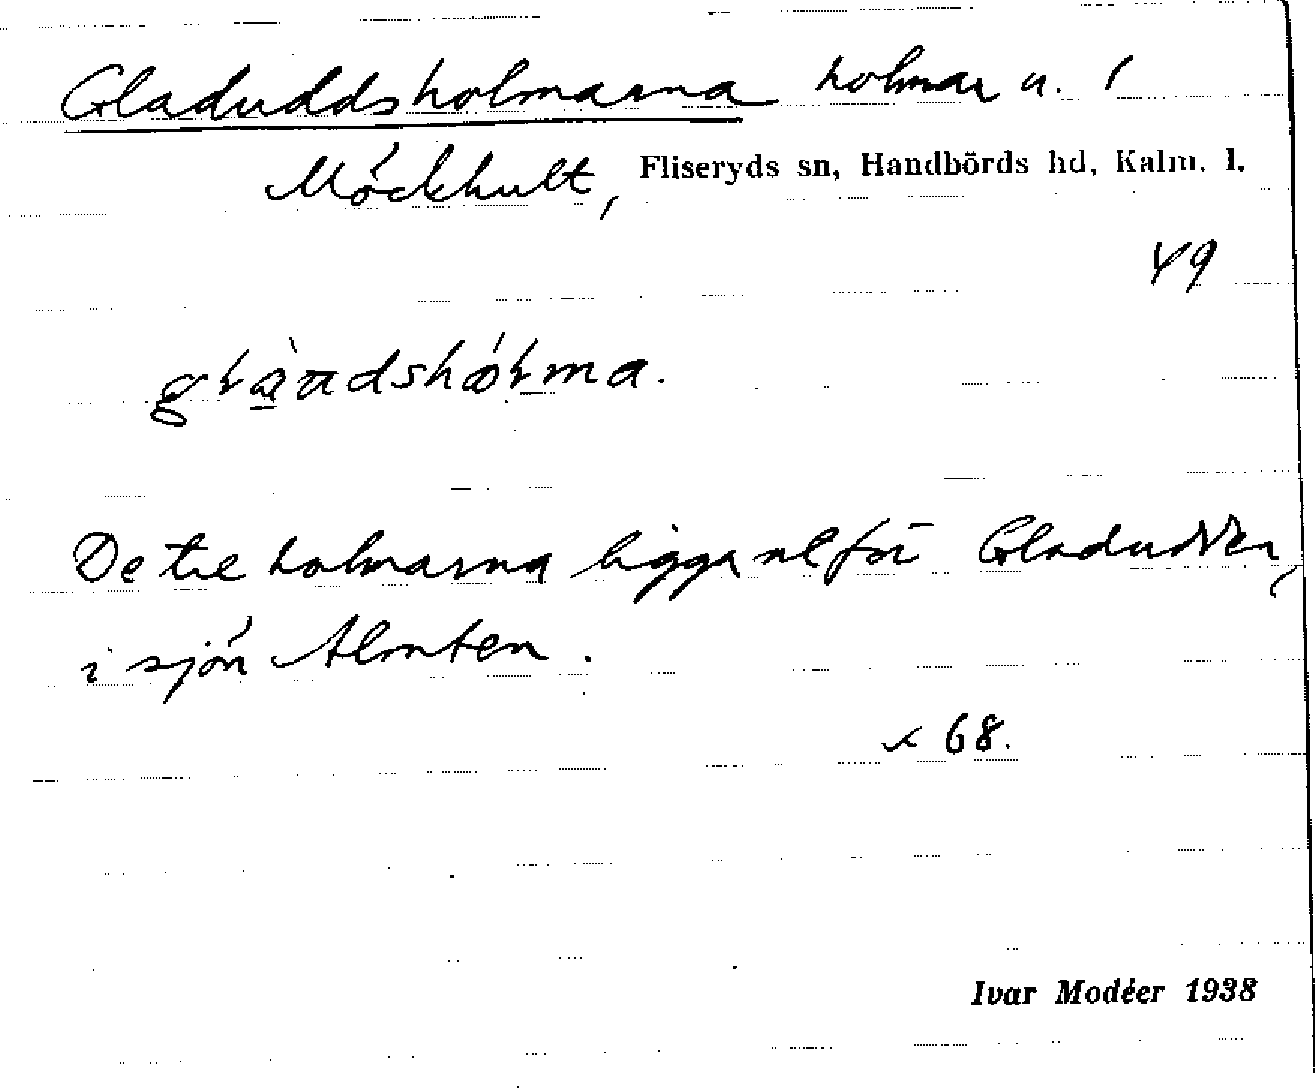 Gladuddsholmarna holmar u. 1
Möckhult, Fliseryds sn, Handbörds hd, Kalm. l.
49
De tre holmarna ligga nl för Gladudden,
i sjön Älmten.
x 68.
Ivar Modéer 1938